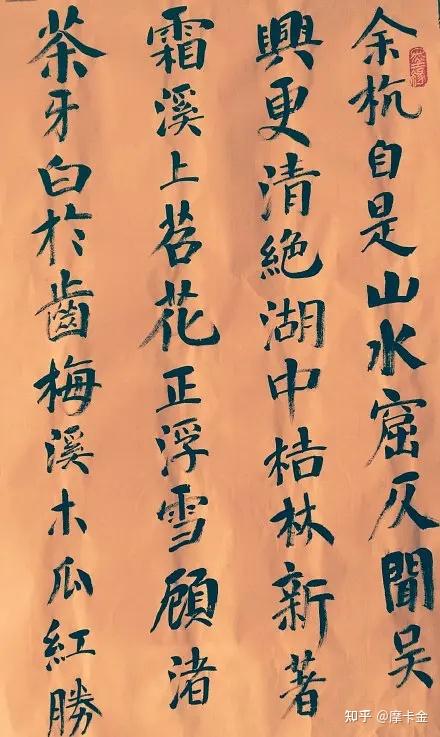 余杭自是山水窟仄聞吴
興更清絶湖中桔林新著
霜溪上苕花正浮雪顾渚
茶牙白於齒梅溪木瓜紅勝
知乎 @摩卡金